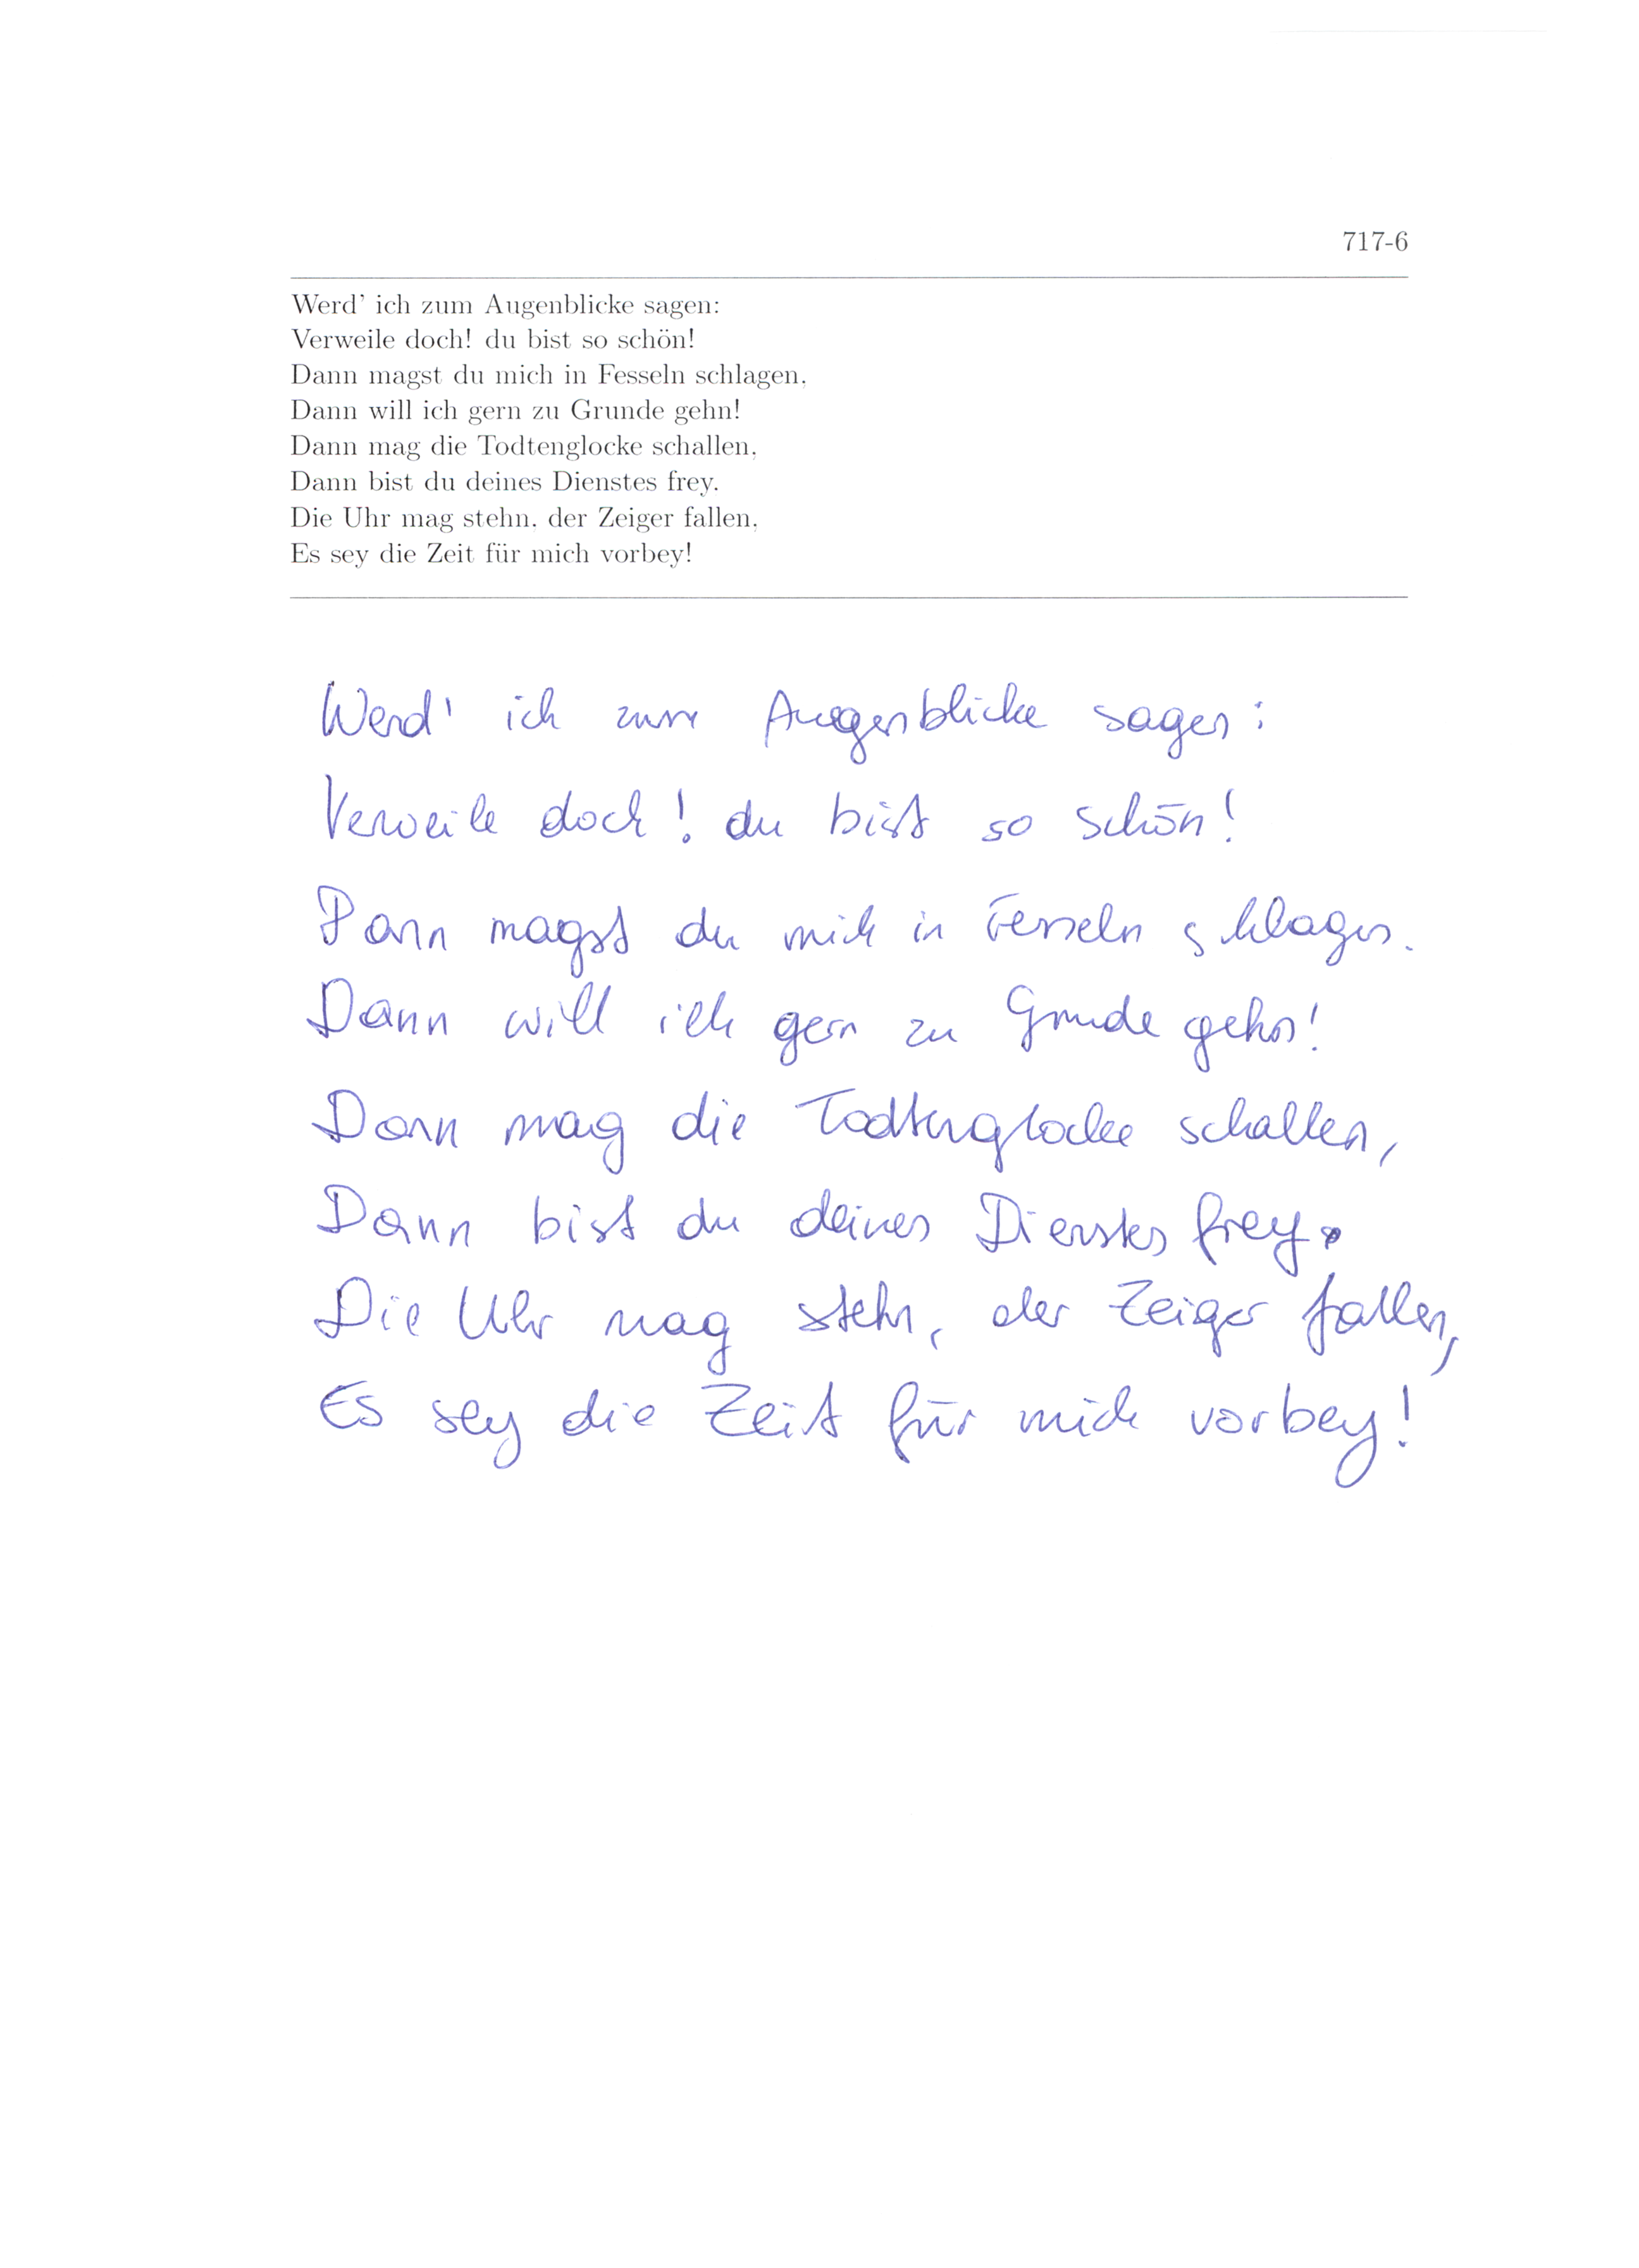 717-6
Werd' ich zum Augenblicke sagen:
Verweile doch! du bist so schön!
Dann magst du mich in Fesseln schlagen,
Dann will ich gern zu Grunde gehn!
Dann mag die Todtenglocke schallen,
Dann bist du deines Dienstes frey.
Die Uhr mag stehn, der Zeiger fallen,
Es sey die Zeit für mich vorbey!
Werd' ich zum Augenblicke sagen:
Verweile doch! du bist so schön!
Dann magst du mich in Fesseln schlagen.
Dann will ich gern zu Grunde gehn!
Dann mag die Todtenglocke schallen,
Dann bist du deines Dienstes frey.
Die Uhr mag stehn, der Zeiger fallen,
Es sey die Zeit für mich vorbey!